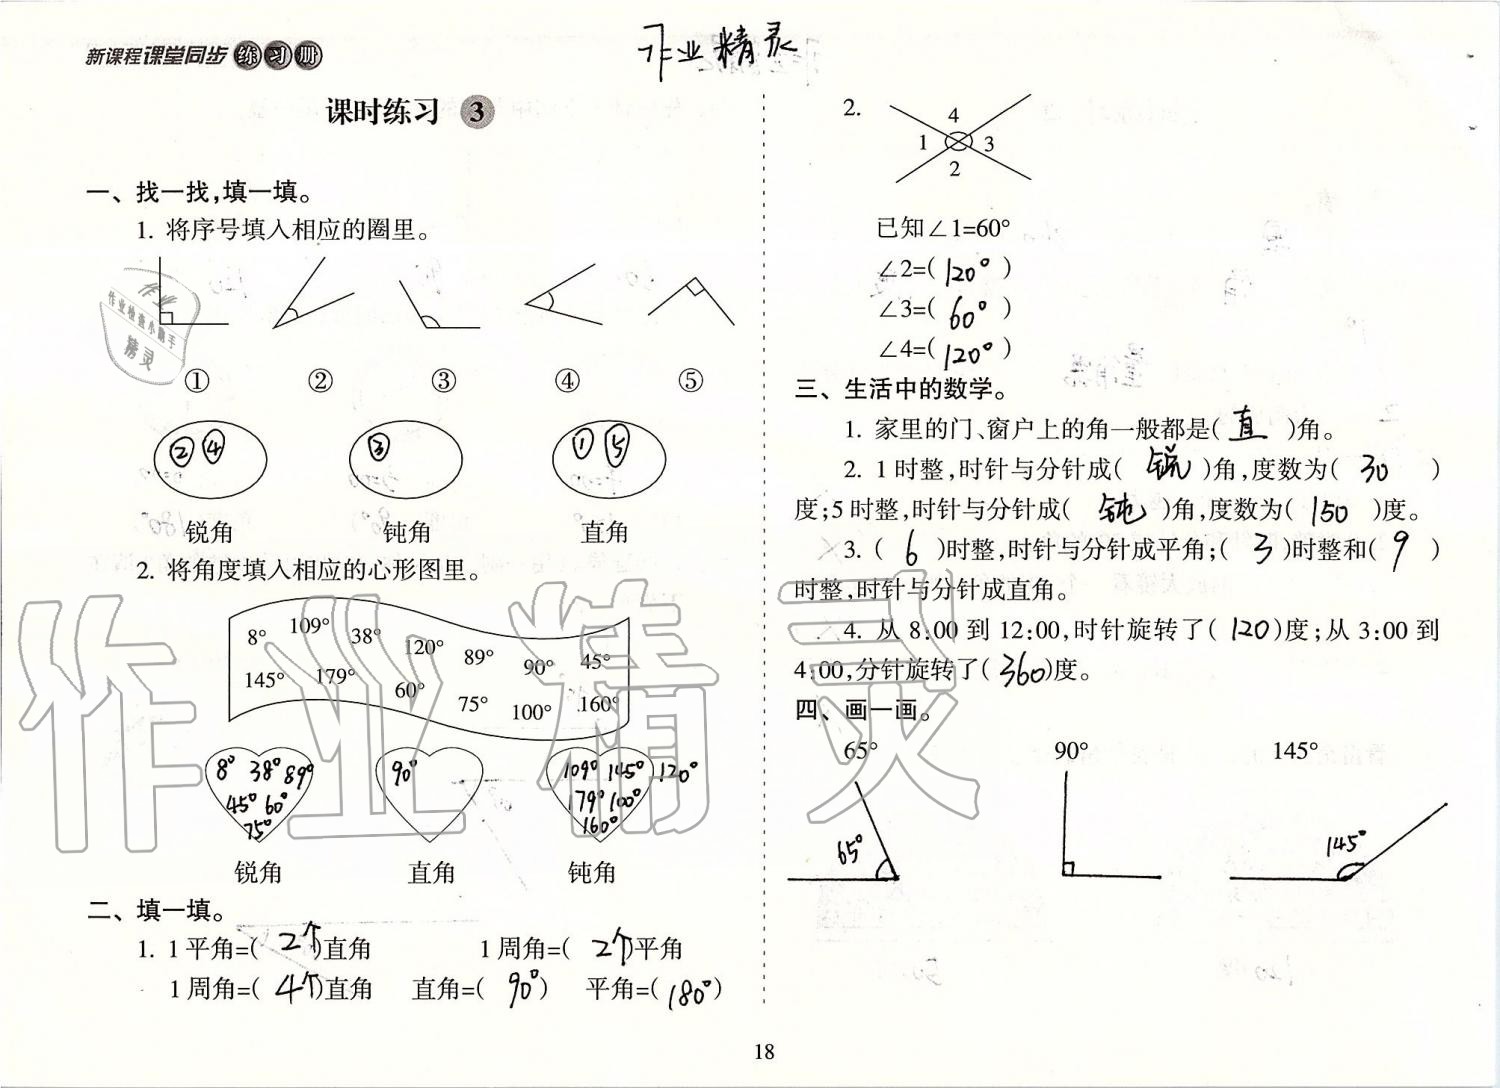 新课程课堂同步练习册
作业精灵
课时练习 3
一、找一找,填一填。
1. 将序号填入相应的圈里。
作业
作业检查小助手
精灵
① ② ③ ④ ⑤
②④ ③ ①⑤
锐角 钝角 直角
2. 将角度填入相应的心形图里。
8° 109° 38° 120° 89° 90° 45°
145° 179° 60° 75° 100° 160°
8° 38° 89° 90° 109° 145° 120°
45° 60° 179° 100°
75° 160°
锐角 直角 钝角
二、填一填。
1. 1平角=( 2个)直角 1周角=( 2个)平角
1周角=( 4个)直角 直角=( 90°) 平角=( 180°)
2.
4
1 3
2
已知∠1=60°
∠2=( 120° )
∠3=( 60° )
∠4=( 120° )
三、生活中的数学。
1. 家里的门、窗户上的角一般都是( 直 )角。
2. 1时整,时针与分针成( 锐 )角,度数为( 30 )
度;5时整,时针与分针成( 钝 )角,度数为( 150 )度。
3. ( 6 )时整,时针与分针成平角;( 3 )时整和( 9 )
时整,时针与分针成直角。
4. 从 8:00 到 12:00,时针旋转了( 120)度;从 3:00 到
4:00,分针旋转了( 360)度。
四、画一画。
65° 90° 145°
65° 145°
18
作业精灵